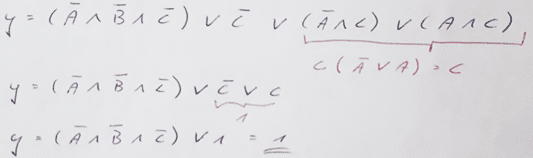 y = (A̅ ∧ B̅ ∧ C̅) ∨ C̅ ∨ (A̅ ∧ C) ∨ (A ∧ C)
C (A̅ ∨ A) = C
y = (A̅ ∧ B̅ ∧ C̅) ∨ C̅ ∨ C
1
y = (A̅ ∧ B̅ ∧ C̅) ∨ 1 = 1